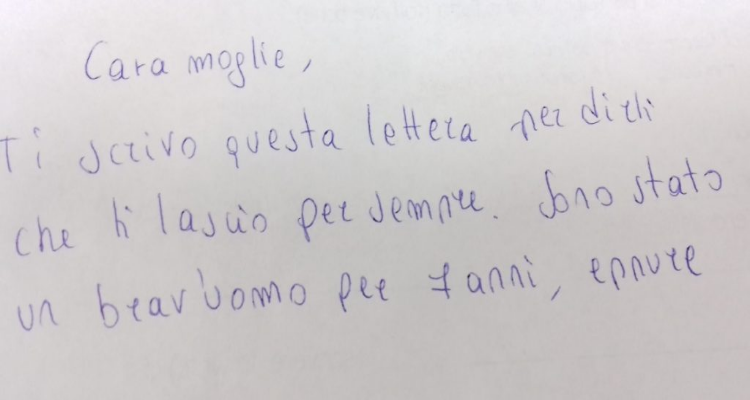 Cara moglie,
Ti scrivo questa lettera per dirti
che ti lascio per sempre. Sono stato
un brav'uomo per 7 anni, eppure